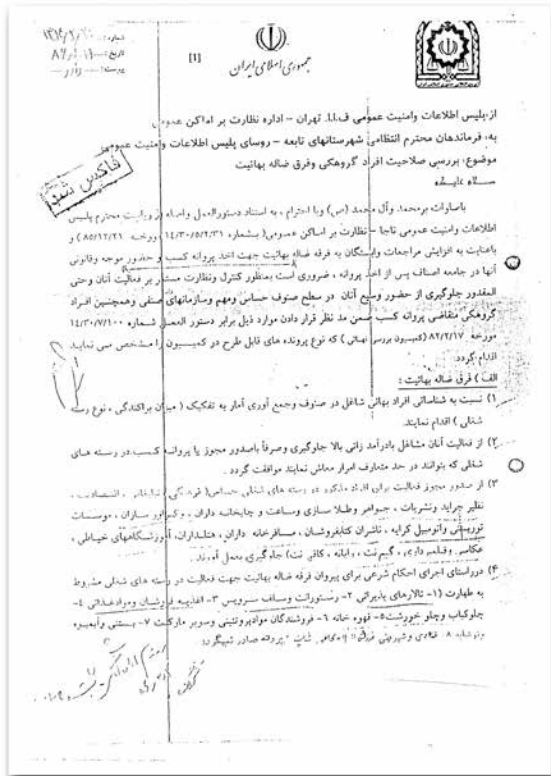 شماره:
تاریخ:
پیوست:
[1]
جمهوری اسلامی ایران
از: پلیس اطلاعات وامنیت عمومی ف.ا.ا. تهران - اداره نظارت بر اماکن عمومی
به: فرماندهان محترم انتظامی شهرستانهای تابعه - روسای پلیس اطلاعات وامنیت عمومی
موضوع: بررسی صلاحیت افراد گروهکی وفرق ضاله بهائیت
سلام علیکم
فاکس شد
باصلوات برمحمد وآل محمد (ص) وبا احترام ، به استناد دستورالعمل واصله از ریاست محترم پلیس
اطلاعات وامنیت عمومی ناجا - نظارت بر اماکن عمومی( بشماره ۱۴/۳۰/۵/۲/۳۱ مورخه ۸۵/۱۲/۲۱ ) و
باعنایت به افزایش مراجعات وابستگان به فرقه ضاله بهائیت جهت اخذ پروانه کسب و حضور موجه وقانونی
آنها در جامعه اصناف پس از اخذ پروانه ، ضروری است بمنظور کنترل ونظارت مستمر بر فعالیت آنان وحتی
المقدور جلوگیری از حضور وسیع آنان در سطح صنوف حساس ومهم وسازمانهای صنفی وهمچنین افراد
گروهکی متقاضی پروانه کسب ضمن مد نظر قرار دادن موارد ذیل برابر دستور العمل شماره ۱۴/۳۰/۷/۱۰۰
مورخه ۸۲/۲/۱۷ (کمیسیون بررسی نهائی) که نوع پرونده های قابل طرح در کمیسیون را مشخص می نماید
اقدام گردد.
الف ) فرق ضاله بهائیت :
۱) نسبت به شناسائی افراد بهائی شاغل در صنوف وجمع آوری آمار به تفکیک ( میزان پراکندگی ، نوع رسته
شغلی ) اقدام نمایند.
۲) از فعالیت آنان مشاغل بادرآمد زائی بالا جلوگیری وصرفاً باصدور مجوز یا پروانه کسب در رسته های
شغلی که بتوانند در حد متعارف امرار معاش نمایند موافقت گردد .
۳) از صدور مجوز فعالیت برای افراد مذکور در رسته های شغلی حساس( فرهنگی ، تبلیغاتی ، اقتصادی ،
نظیر جراید ونشریات ، جواهر وطلا سازی وساعت و چاپخانه داران ، و سازان ، موسسات
توریستی واتومبیل کرایه ، ناشران کتابفروشان ، مسافرخانه داران ، هتلداران، آموزشگاههای خیاطی ،
عکاسی وفیلمبرداری ، گیم نت ، رایانه ، کافی نت) جلوگیری بعمل آورند .
۴) درراستای اجرای احکام شرعی برای پیروان فرقه ضاله بهائیت جهت فعالیت در رسته های شغلی مشروط
به طهارت (۱- تالارهای پذیرائی ۲- رستورانت وسلف سرویس ۳- اغذیه فروشان وموادغذائی ۴-
چلوکباب وچلو خورشت ۵- قهوه خانه ۶- فروشندگان موادپروتئینی وسوپر مارکت ۷- بستنی وآبمیوه
ونوشابه ۸- قنادی وشیرینی فروشی شاپ ) پروانه صادر نمیگردد.